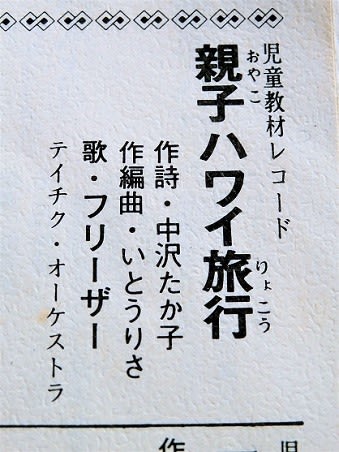 児童教材レコード
親子ハワイ旅行
おやこ
りょこう
作詩・中沢たか子
作編曲・いとうりさ
歌・フリーザー
テイチク・オーケストラ
作